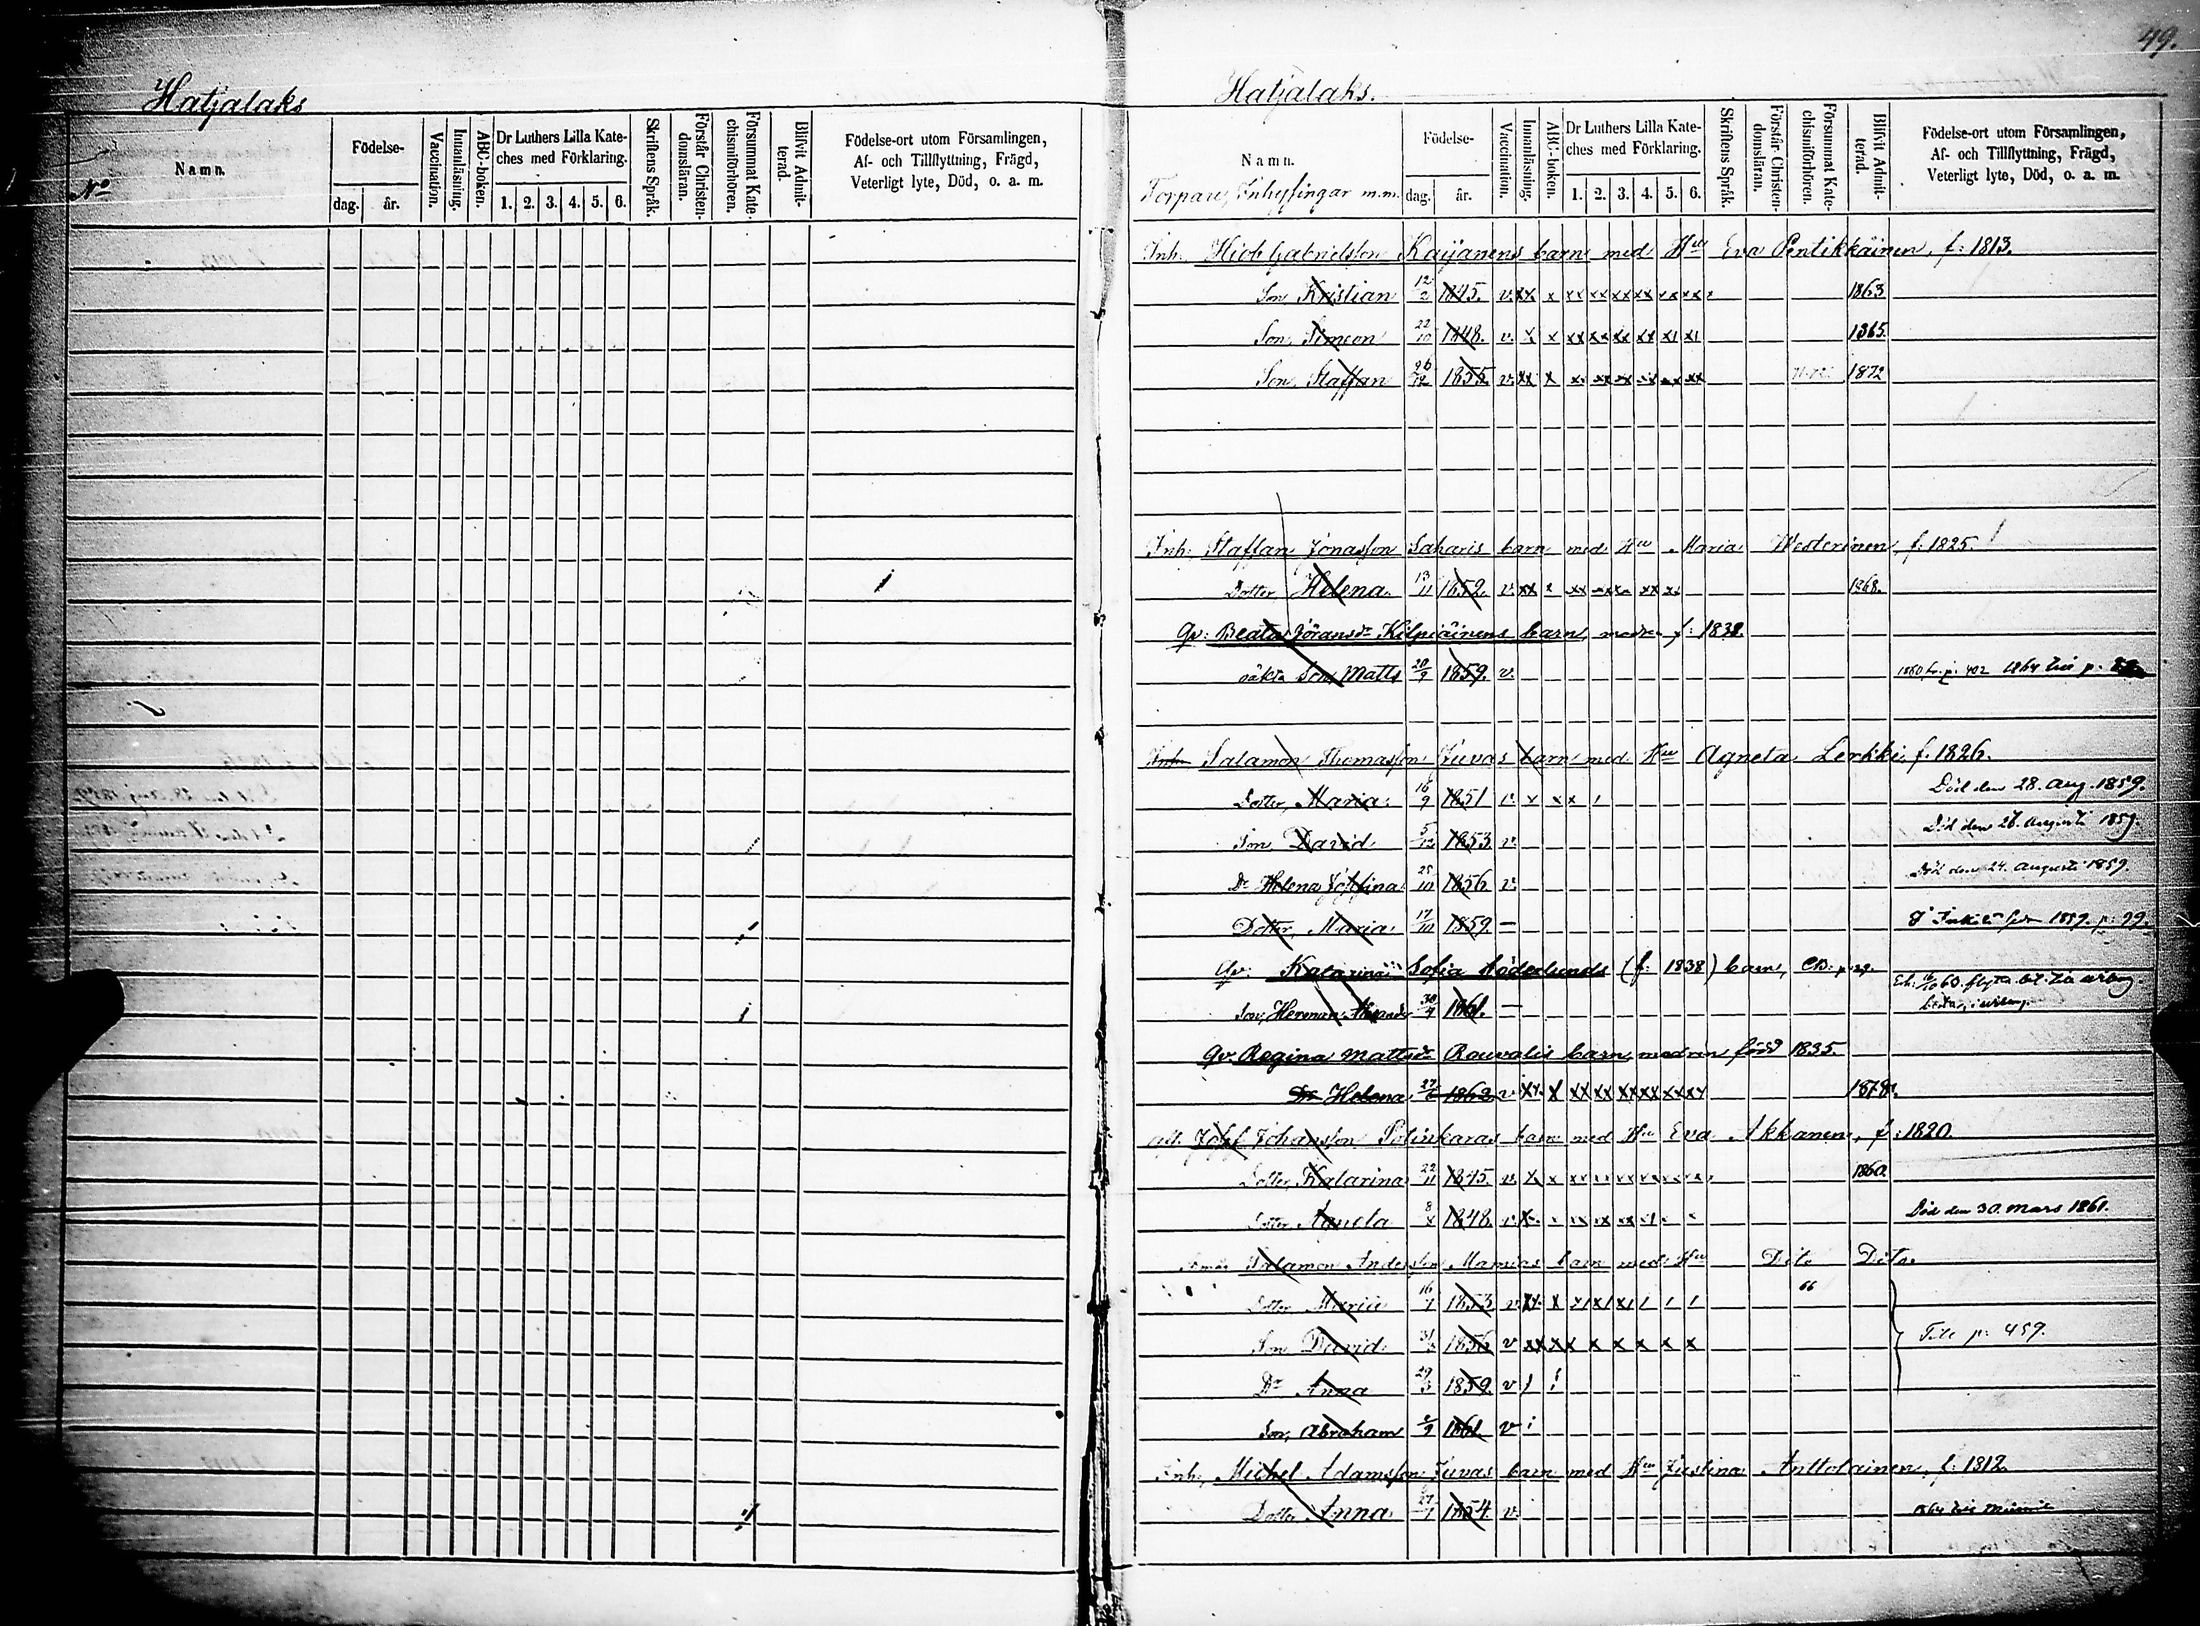 49.
Hatjalaks
Hatjalaks.
No Namn. Födelse- dag. år. Vaccination. Innanläsning. ABC-boken. Dr Luthers Lilla Kate-ches med Förklaring. 1. 2. 3. 4. 5. 6. Skriftens Språk. Förstår Christen-domsläran. Försummat Kate-chismiförhören. Blifvit Admit-terad. Födelse-ort utom Församlingen, Af- och Tillflyttning, Frägd, Veterligt lyte, Död, o. a. m.
Namn. Torpare, Inhysingar m.m. Födelse- dag. år. Vaccination. Innanläsning. ABC-boken. Dr Luthers Lilla Kate-ches med Förklaring. 1. 2. 3. 4. 5. 6. Skriftens Språk. Förstår Christen-domsläran. Försummat Kate-chismiförhören. Blifvit Admit-terad. Födelse-ort utom Församlingen, Af- och Tillflyttning, Frägd, Veterligt lyte, Död, o. a. m.
Inh. Hiob Gabrielsson Kaijanens barn med Hu Eva Pentikkäinen, f: 1813.
Son Kristian 12/2 1845. v. xx x xx xx xx xx xx xx 1863
Son Simeon 22/10 1848. v. x x xx xx xx xx x1 x1 1865.
Son Staffan 26/12 1855. v. xx x xx xx xx xx xx xx 1872
Inh: Staffan Jonasson Saharis barn med Hu Maria Westerinen f: 1825.
Dotter, Helena. 13/11 1852. v. xx x xx xx xx xx 1868.
Qv: Beata Göransdr Kilpiäinens barn, modren f: 1838.
oäkta Son, Matts 20/9 1859. v. 1860 fr. p: 402 1864 till p:
Salamon Thomasson Juvas barn med Hu Agneta Lerkki, f. 1826.
Dotter, Maria. 16/9 1851 v. x x x 1 Död den 28. Aug. 1859.
Son David 5/12 1853 v. Död den 26. Augusti 1859.
Dr Helena Josefina 25/10 1856 v. Död den 24. Augusti 1859.
Dotter, Maria 17/10 1859. — 1859. p: 99.
Qv: Katarina Sofia Söderlunds (f: 1838) barn, CB: p: 29.
Son, Herman 30/4 1861. —
Qv. Regina Mattsdr Rouvalis barn, modren född 1835.
Dr Helena 27/6 1862 v. xx. x xx xx xx xx xx xx 1878.
Josef Johansson Solinkaras barn med Hu Eva Akkanen, f: 1820.
Dotter, Katarina 22/11 1845. v. x x xx xx xx xx xx xx 1860
Dotter Agneta 8/x 1848. v. x Död den 30. Mars 1861.
Salamon Andersson Mamias barn med Hu Dito Dito.
Dotter Maria 16/1 1853 v. xx. x x1 x1 x1 1 1 1 66
Son David 31/ 1856 v xx xx x x x x x x
p: 459.
Dr Anna 29/3 1859. v 1 1
Son, Abraham 2/9 1861. v
Inh, Michel Adamsson Juvas barn med Hu Justina Anttolainen, f: 1812.
Dotter Anna 27/1 1854. v.